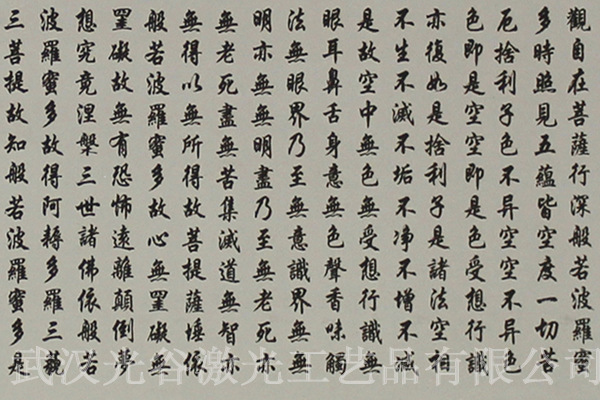 觀自在菩薩行深般若波羅蜜
多時照見五蘊皆空度一切苦
厄捨利子色不异空空不异色
色即是空空即是色受想行識
亦復如是捨利子是諸法空相
不生不滅不垢不净不增不減
是故空中無色無受想行識無
眼耳鼻舌身意無色聲香味觸
法無眼界乃至無意識界無無
明亦無無明盡乃至無老死亦
無老死盡無苦集滅道無智亦
無得以無所得故菩提薩埵依
般若波羅蜜多故心無罣礙無
罣礙故無有恐怖遠離顛倒夢
想究竟涅槃三世諸佛依般若
波羅蜜多故得阿耨多羅三藐
三菩提故知般若波羅蜜多是
武汉光谷激光工艺品有限公司